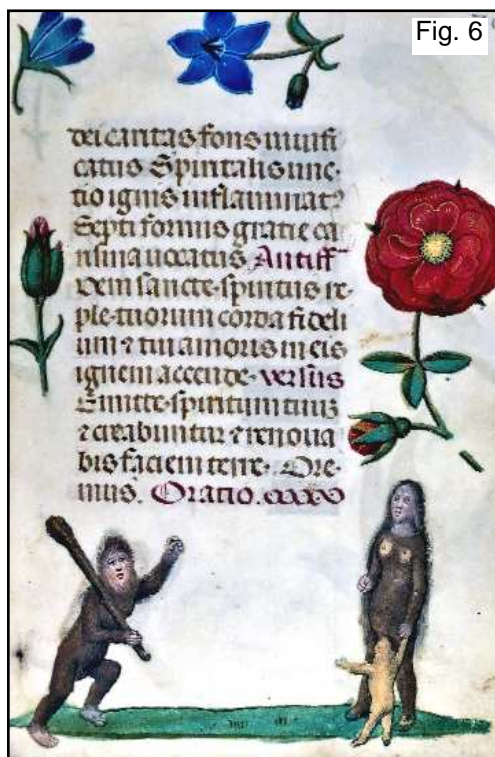 Fig. 6
dei caritas fons uiuifi
catus Spiritalis unc-
tio ignis inflammat?
Septi formis gratie ca
risma uocatus Antiff
Veni sancte-spiritus re-
ple-tuorum corda fideli
um ⁊ tui amoris in eis
ignem accende- versus
Emitte-spiritum tuuz
⁊ creabuntur ⁊ renoua
bis faciem terre- Ore-
mus. Oratio.